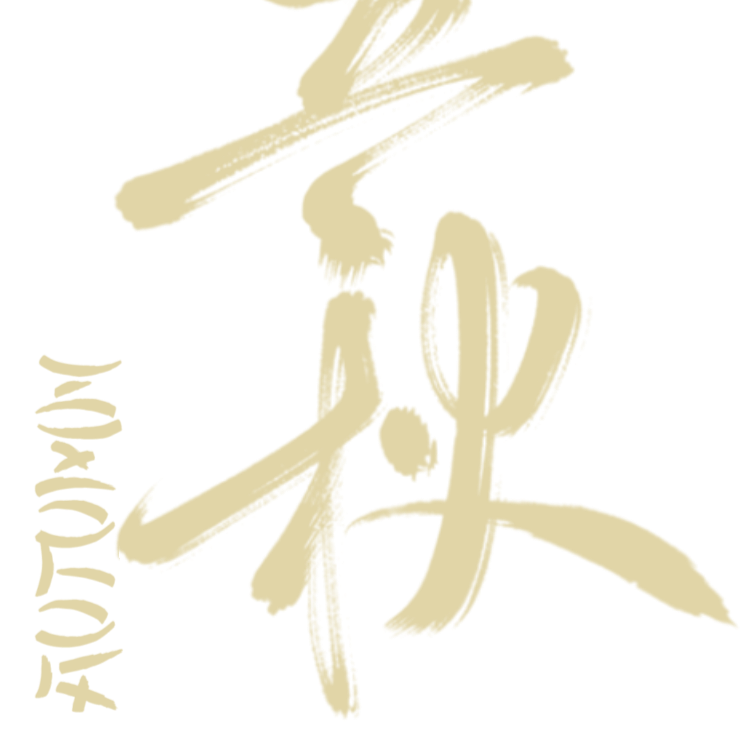 立秋
AUTUMN